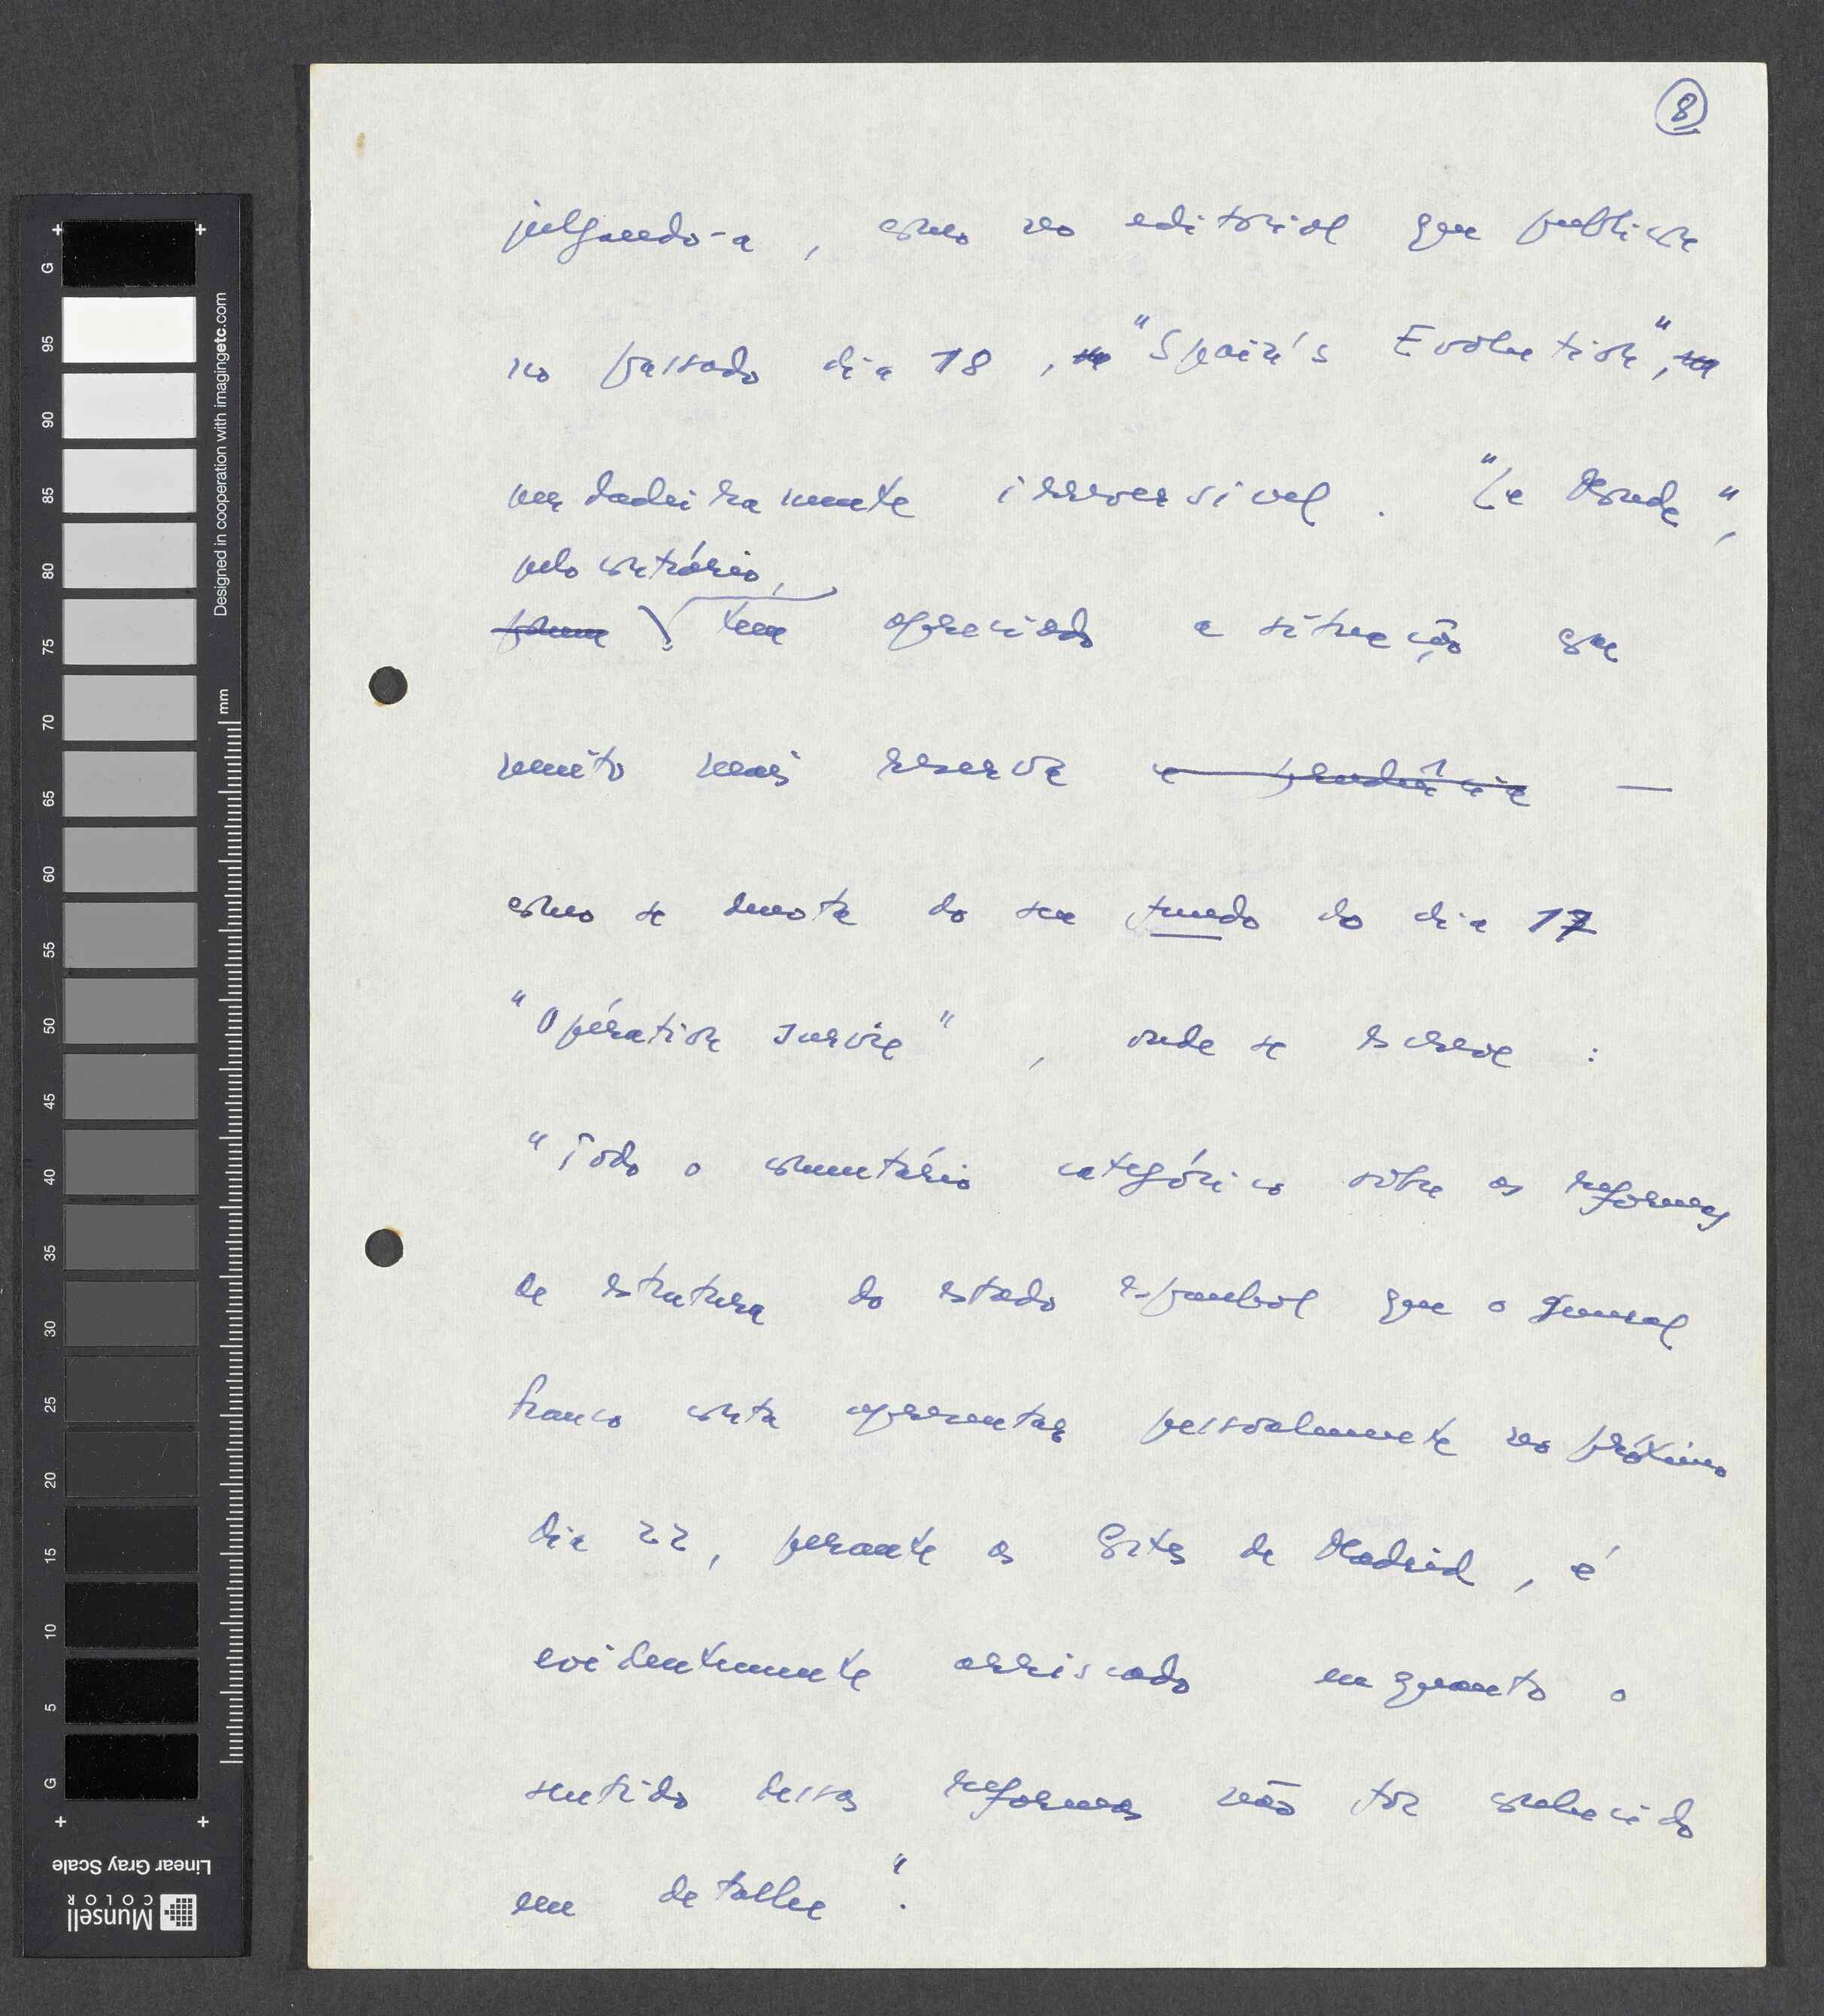 8
julgando-a, como no editorial que publicou
no passado dia 18, "Spain's Evolution",
verdadeiramente irreversivel. "Le Monde",
pelo contrário,
tem apreciado a situação com
muito mais reserva e prudência —
como se denota do seu fundo do dia 17
"Opération survie", onde se escreve:
"Todo o comentário categórico sôbre as reformas
de estrutura do estado espanhol que o general
Franco conta apresentar pessoalmente no próximo
dia 22, perante as Cortes de Madrid, é
evidentemente arriscado enquanto o
sentido dessas reformas não fôr conhecido
em detalhe".
G 95 90 85 80 75 70 65 60 55 50 45 40 35 30 25 20 15 10 5 G
Designed in cooperation with imagingetc.com
mm
Linear Gray Scale
Munsell
COLOR